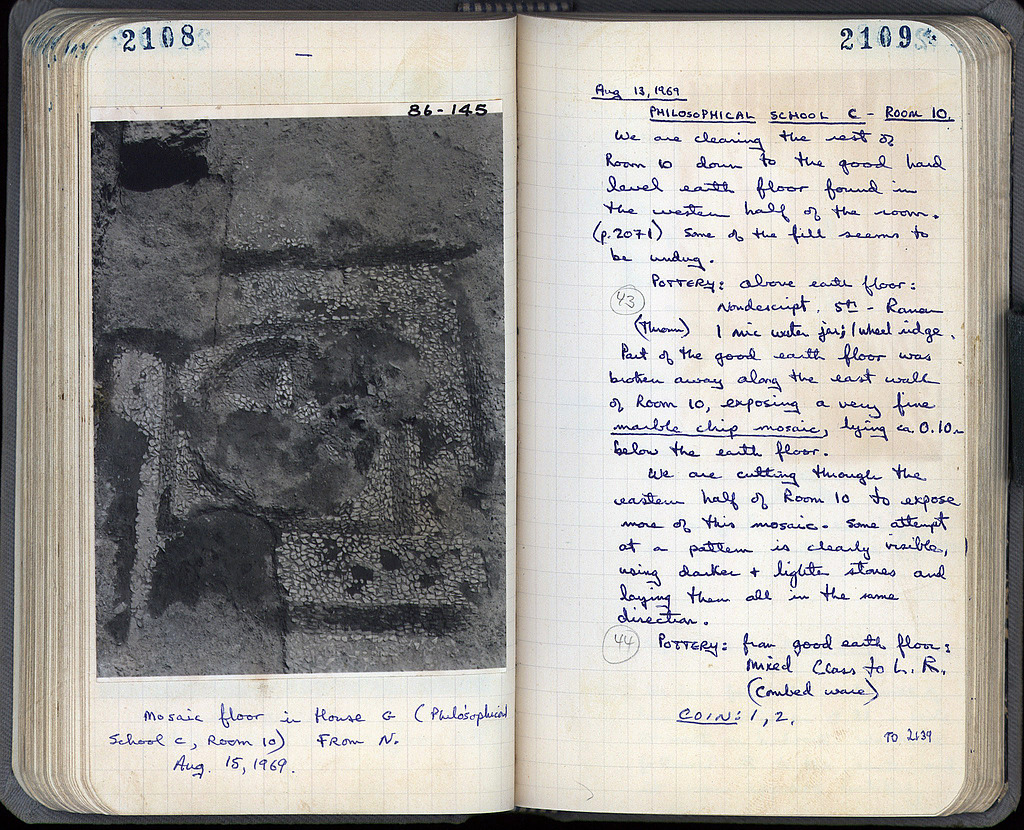 2108
86-145
Mosaic floor in House G (Philosophical
School C, Room 10) From N.
Aug. 15, 1969.
2109
Aug 13, 1969
PHILOSOPHICAL SCHOOL C - ROOM 10.
We are clearing the rest of
Room 10 down to the good hard
level earth floor found in
the western half of the room.
(p.2071) Some of the fill seems to
be undug.
POTTERY: above earth floor:
43 Nondescript, 5th - Roman
(thrown) 1 mic water jar, 1 wheel ridge.
Part of the good earth floor was
broken away along the east wall
of Room 10, exposing a very fine
marble chip mosaic, lying ca. 0.10m
below the earth floor.
We are cutting through the
eastern half of Room 10 to expose
more of this mosaic. Some attempt
at a pattern is clearly visible,
using darker + lighter stones and
laying them all in the same
direction.
44 POTTERY: from good earth floor:
mixed Class to L. R.
(Combed ware)
COIN: 1, 2.
TO 2139